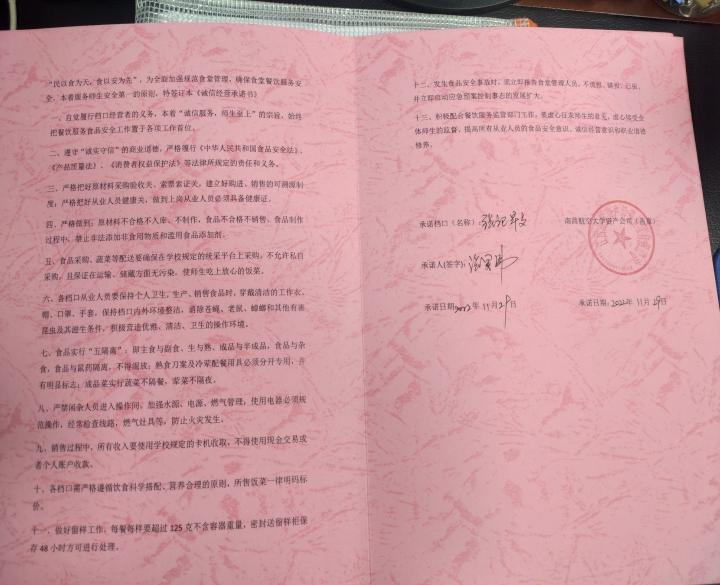 “民以食为天，食以安为先”，为全面加强规范食堂管理，确保食堂餐饮服务安
全，本着服务师生安全第一的原则，特签订本《诚信经营承诺书》
一、自觉履行档口经营者的义务，本着“诚信服务，师生至上”的宗旨，始终
把餐饮服务食品安全工作置于各项工作首位。
二、遵守“诚实守信”的商业道德，严格履行《中华人民共和国食品安全法》、
《产品质量法》、《消费者权益保护法》等法律所规定的责任和义务。
三、严格把好原材料采购验收关、索票索证关，建立好购进、销售的可溯源制
度；严格把好从业人员健康关，做到上岗从业人员必须具备健康证。
四、严格做到：原材料不合格不入库、不制作，食品不合格不销售、食品制作
过程中，禁止非法添加非食用物质和滥用食品添加剂。
五、食品采购、蔬菜等配送要确保在学校规定的统采平台上采购，不允许私自
采购，且保证在运输、储藏方面无污染，使师生吃上放心的饭菜。
六、各档口从业人员要保持个人卫生，生产、销售食品时，穿戴清洁的工作衣、
帽、口罩、手套，保持档口内外环境整洁，消除苍蝇、老鼠、蟑螂和其他有害
昆虫及其滋生条件，积极营造优雅、清洁、卫生的操作环境。
七、食品实行“五隔离”：即主食与副食、生与熟、成品与半成品，食品与杂
食，食品与鼠药隔离，不得混放；熟食刀案及冷荤配餐用具必须分开专用，并
有明显标志；成品菜实行蔬菜不隔餐，荤菜不隔夜。
八、严禁闲杂人员进入操作间，加强水源、电源、燃气管理，使用电器必须规
范操作，经常检查线路，燃气灶具等，防止火灾发生。
九、销售过程中，所有收入要使用学校规定的卡机收取，不得使用现金交易或
者个人账户收款。
十、各档口需严格遵循饮食科学搭配、营养合理的原则，所售饭菜一律明码标
价。
十一、做好留样工作，每餐每样要超过 125 克不含容器重量，密封送留样柜保
存 48 小时方可进行处理。
十二、发生食品安全事故时，需立即报告食堂管理人员，不谎报、错报、
并立即启动应急预案控制事态的发展扩大。
十三、积极配合餐饮服务监管部门工作；要虚心征求师生的意见，虚心接受全
体师生的监督，提高所有从业人员的食品安全意识、诚信经营意识和职业道德
修养。
承诺档口（名称）：
南昌航空大学资产公司（盖章）
承诺人(签字)：
承诺日期：2022年 11月29日
承诺日期：2022年 11月29日